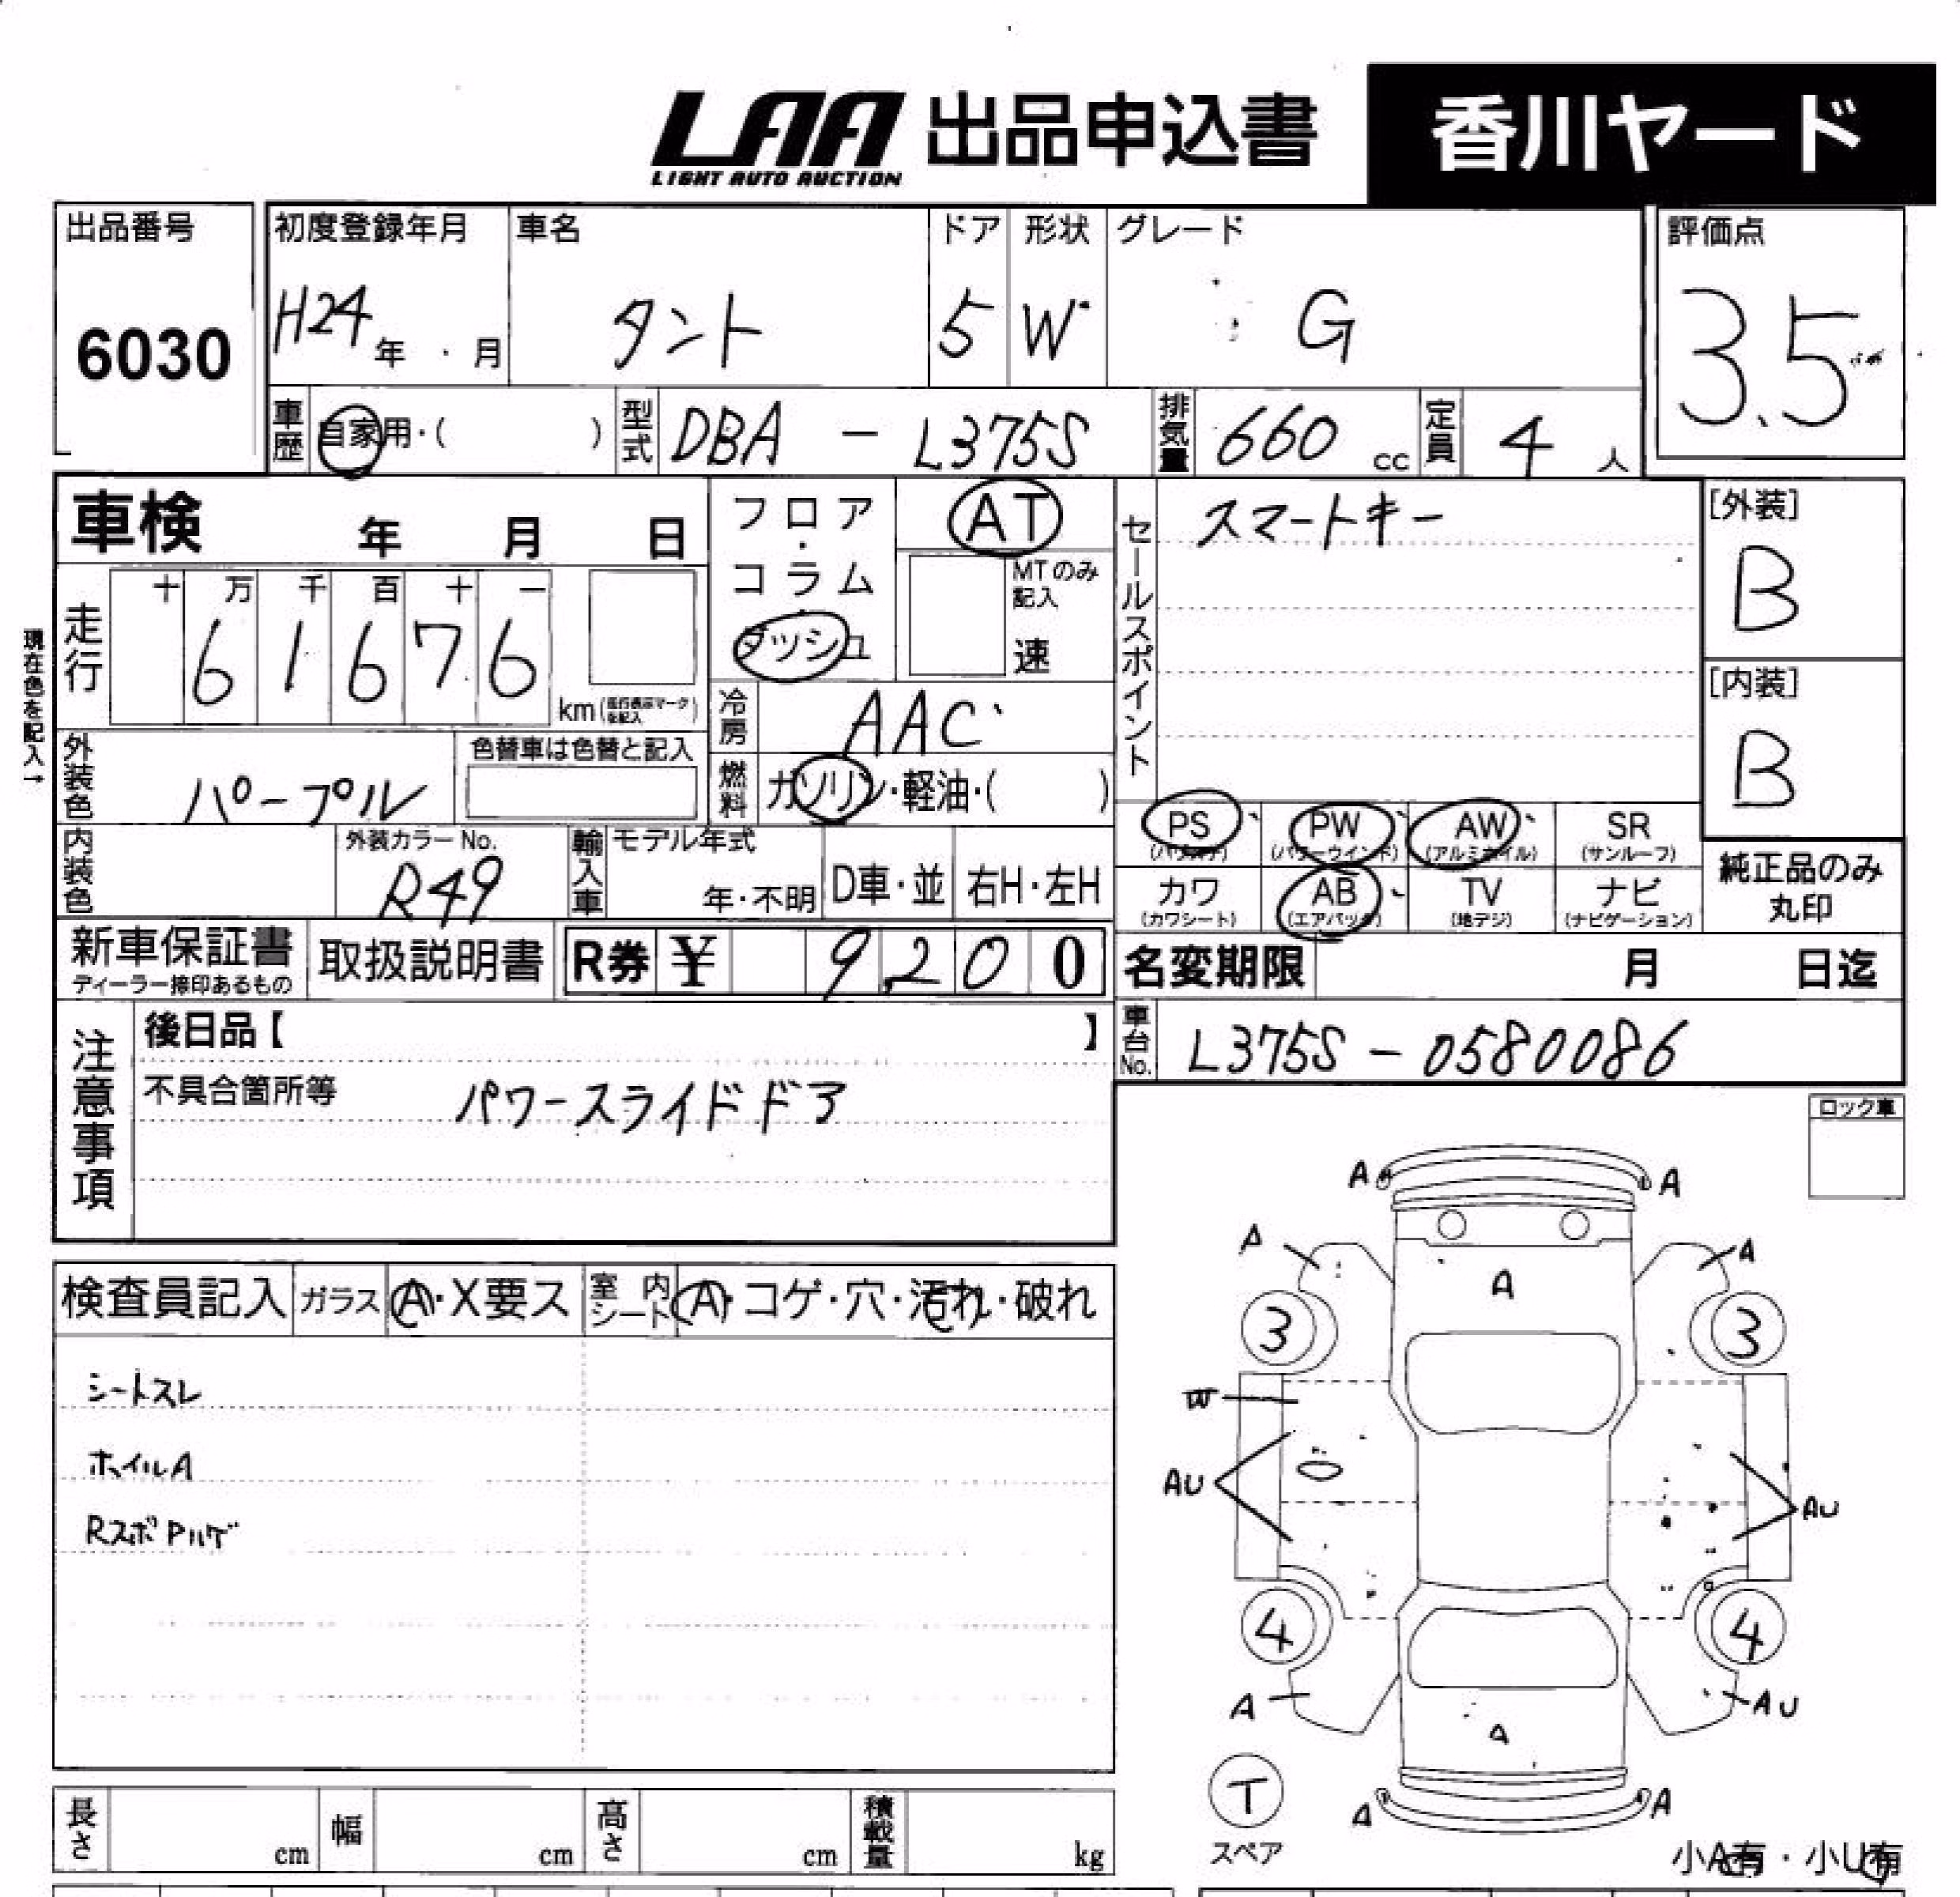 LAA 出品申込書 香川ヤード
LIGHT AUTO AUCTION
出品番号 初度登録年月 車名 ドア 形状 グレード 評価点
6030 H24年・月 タント 5 W G 3.5
車歴 自家用・( ) 型式 DBA - L375S 排気量 660 cc 定員 4 人
車検 年 月 日
フロア・コラム・ダッシュ AT
MTのみ記入 速
セールスポイント スマートキー
[外装] B
[内装] B
現在色を記入→
走行 十 万 千 百 十 一
6 1 6 7 6 km(走行表示マークを記入)
冷房 AAC
外装色 パープル 色替車は色替と記入
燃料 ガソリン・軽油・( )
PS PW AW SR
(パワステ) (パワーウインド) (アルミホイル) (サンルーフ)
カワ AB TV ナビ
(カワシート) (エアバッグ) (地デジ) (ナビゲーション)
純正品のみ
丸印
内装色 外装カラーNo. R49 輸入車 モデル年式 年・不明 D車・並 右H・左H
新車保証書 取扱説明書 R券 ¥ 9200
ディーラー捺印あるもの
名変期限 月 日迄
車台No. L375S - 0580086
注意事項
後日品【 】
不具合箇所等 パワースライドドア
ロック車
検査員記入 ガラス A・X要ス 室内シート A・コゲ・穴・汚れ・破れ
シートスレ
ホイルA
RスポPハゲ
A A
A A A
3 3
W
AU AU
4 4
A A AU
T A A
スペア 小A有・小U有
長さ cm 幅 cm 高さ cm 積載量 kg